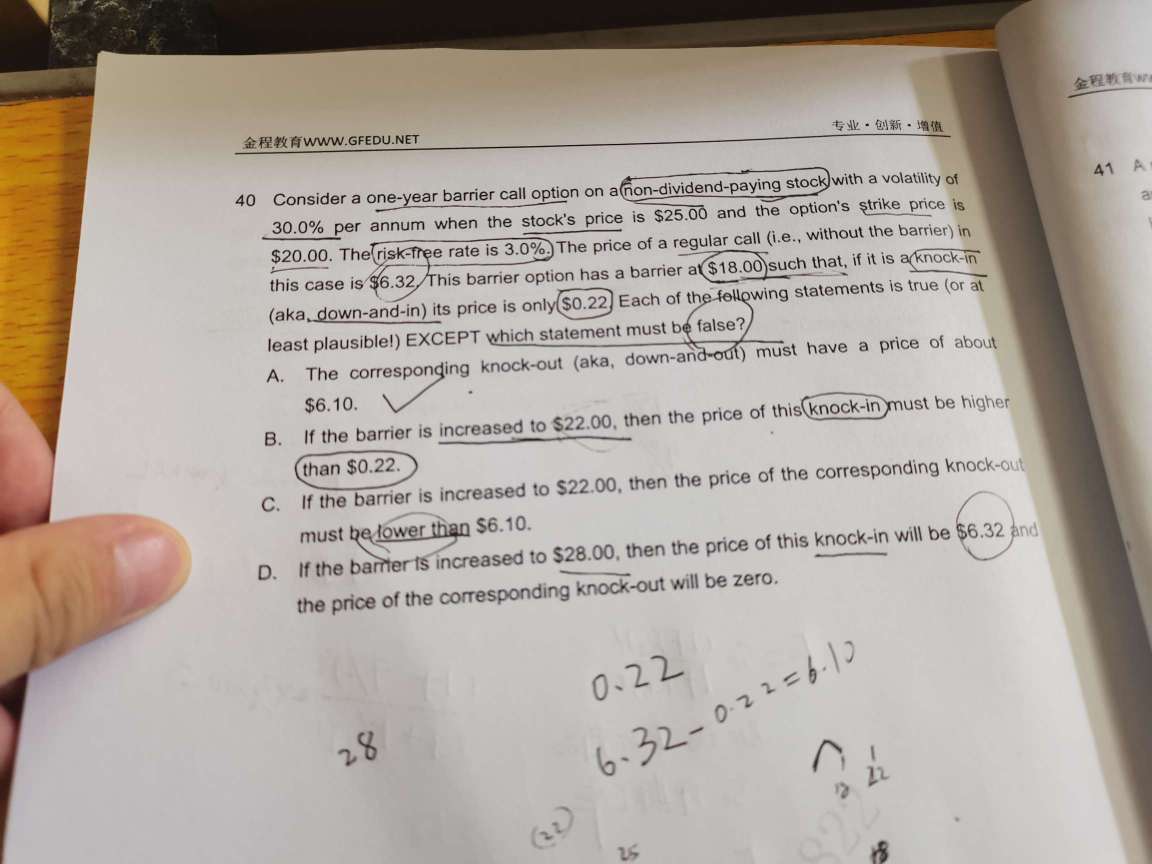 金程教育WWW.GFEDU.NET
专业·创新·增值
金程教育
40 Consider a one-year barrier call option on a non-dividend-paying stock with a volatility of
30.0% per annum when the stock's price is $25.00 and the option's strike price is
$20.00. The risk-free rate is 3.0%. The price of a regular call (i.e., without the barrier) in
this case is $6.32. This barrier option has a barrier at $18.00 such that, if it is a knock-in
(aka, down-and-in) its price is only $0.22. Each of the following statements is true (or at
least plausible!) EXCEPT which statement must be false?
A. The corresponding knock-out (aka, down-and-out) must have a price of about
$6.10.
B. If the barrier is increased to $22.00, then the price of this knock-in must be higher
than $0.22.
C. If the barrier is increased to $22.00, then the price of the corresponding knock-out
must be lower than $6.10.
D. If the barrier is increased to $28.00, then the price of this knock-in will be $6.32 and
the price of the corresponding knock-out will be zero.
41
0.22
6.32-0.22=6.10
28
22
(22)
25
18